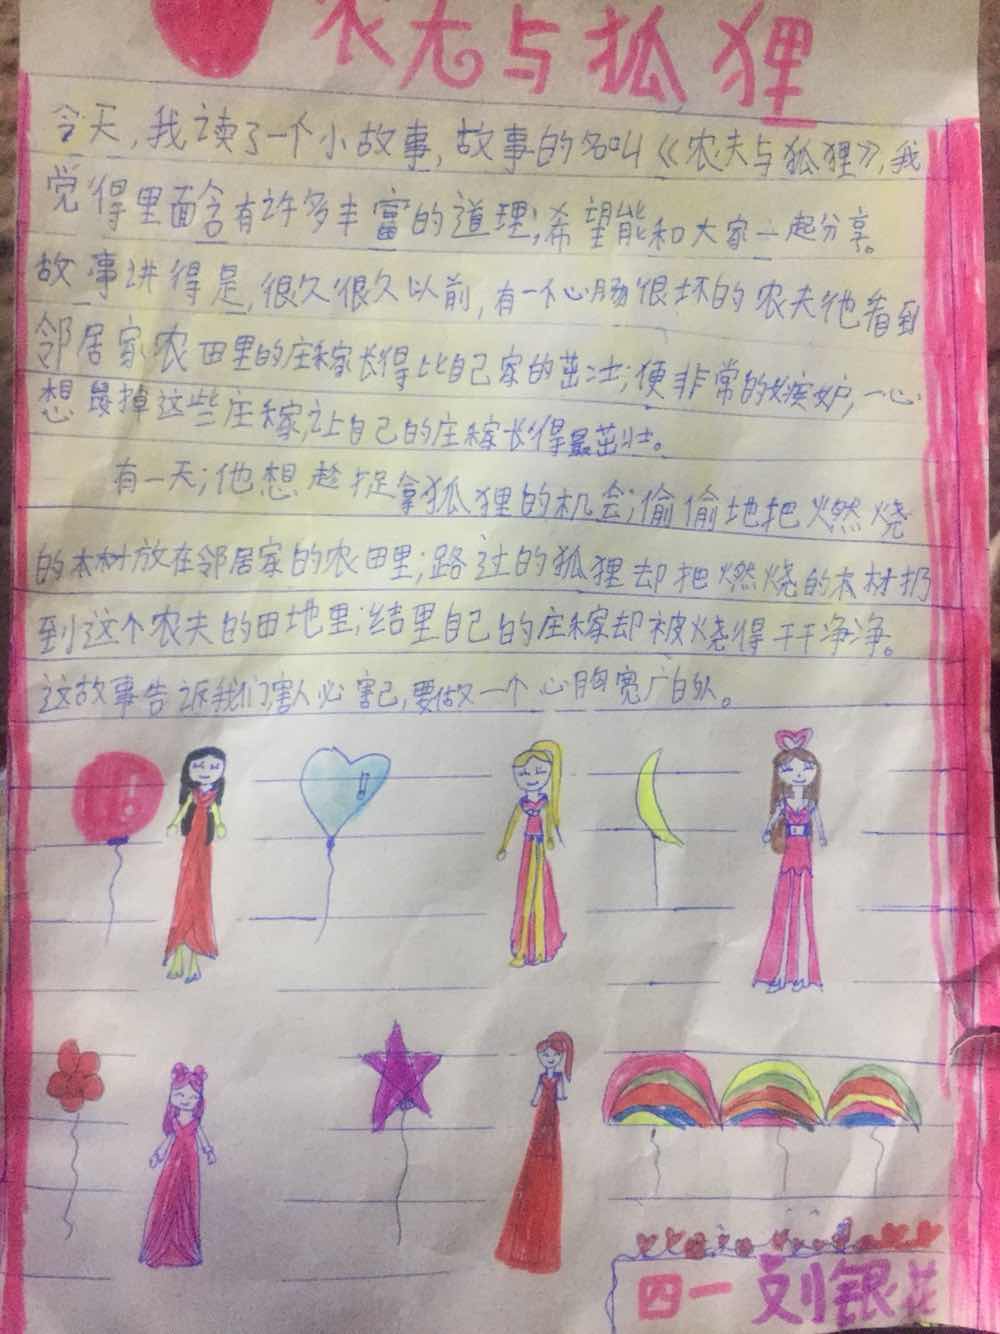 农夫与狐狸
今天,我读了一个小故事,故事的名叫《农夫与狐狸》,我
觉得里面含有许多丰富的道理;希望能和大家一起分享。
故事讲得是,很久很久以前,有一个心肠很坏的农夫他看到
邻居家农田里的庄稼长得比自己家的茁壮;便非常的嫉妒,一心
想毁掉这些庄稼,让自己的庄稼长得最茁壮。
有一天;他想趁捉拿狐狸的机会;偷偷地把燃烧
的木材放在邻居家的农田里;路过的狐狸却把燃烧的木材扔
到这个农夫的田地里;结里自己的庄稼却被烧得干干净净。
这故事告诉我们,害人必害己,要做一个心胸宽广的人。
四一 刘银花